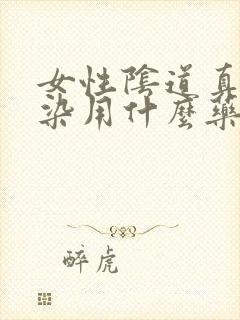 女性陰道真
染用什麼藥
醉虎